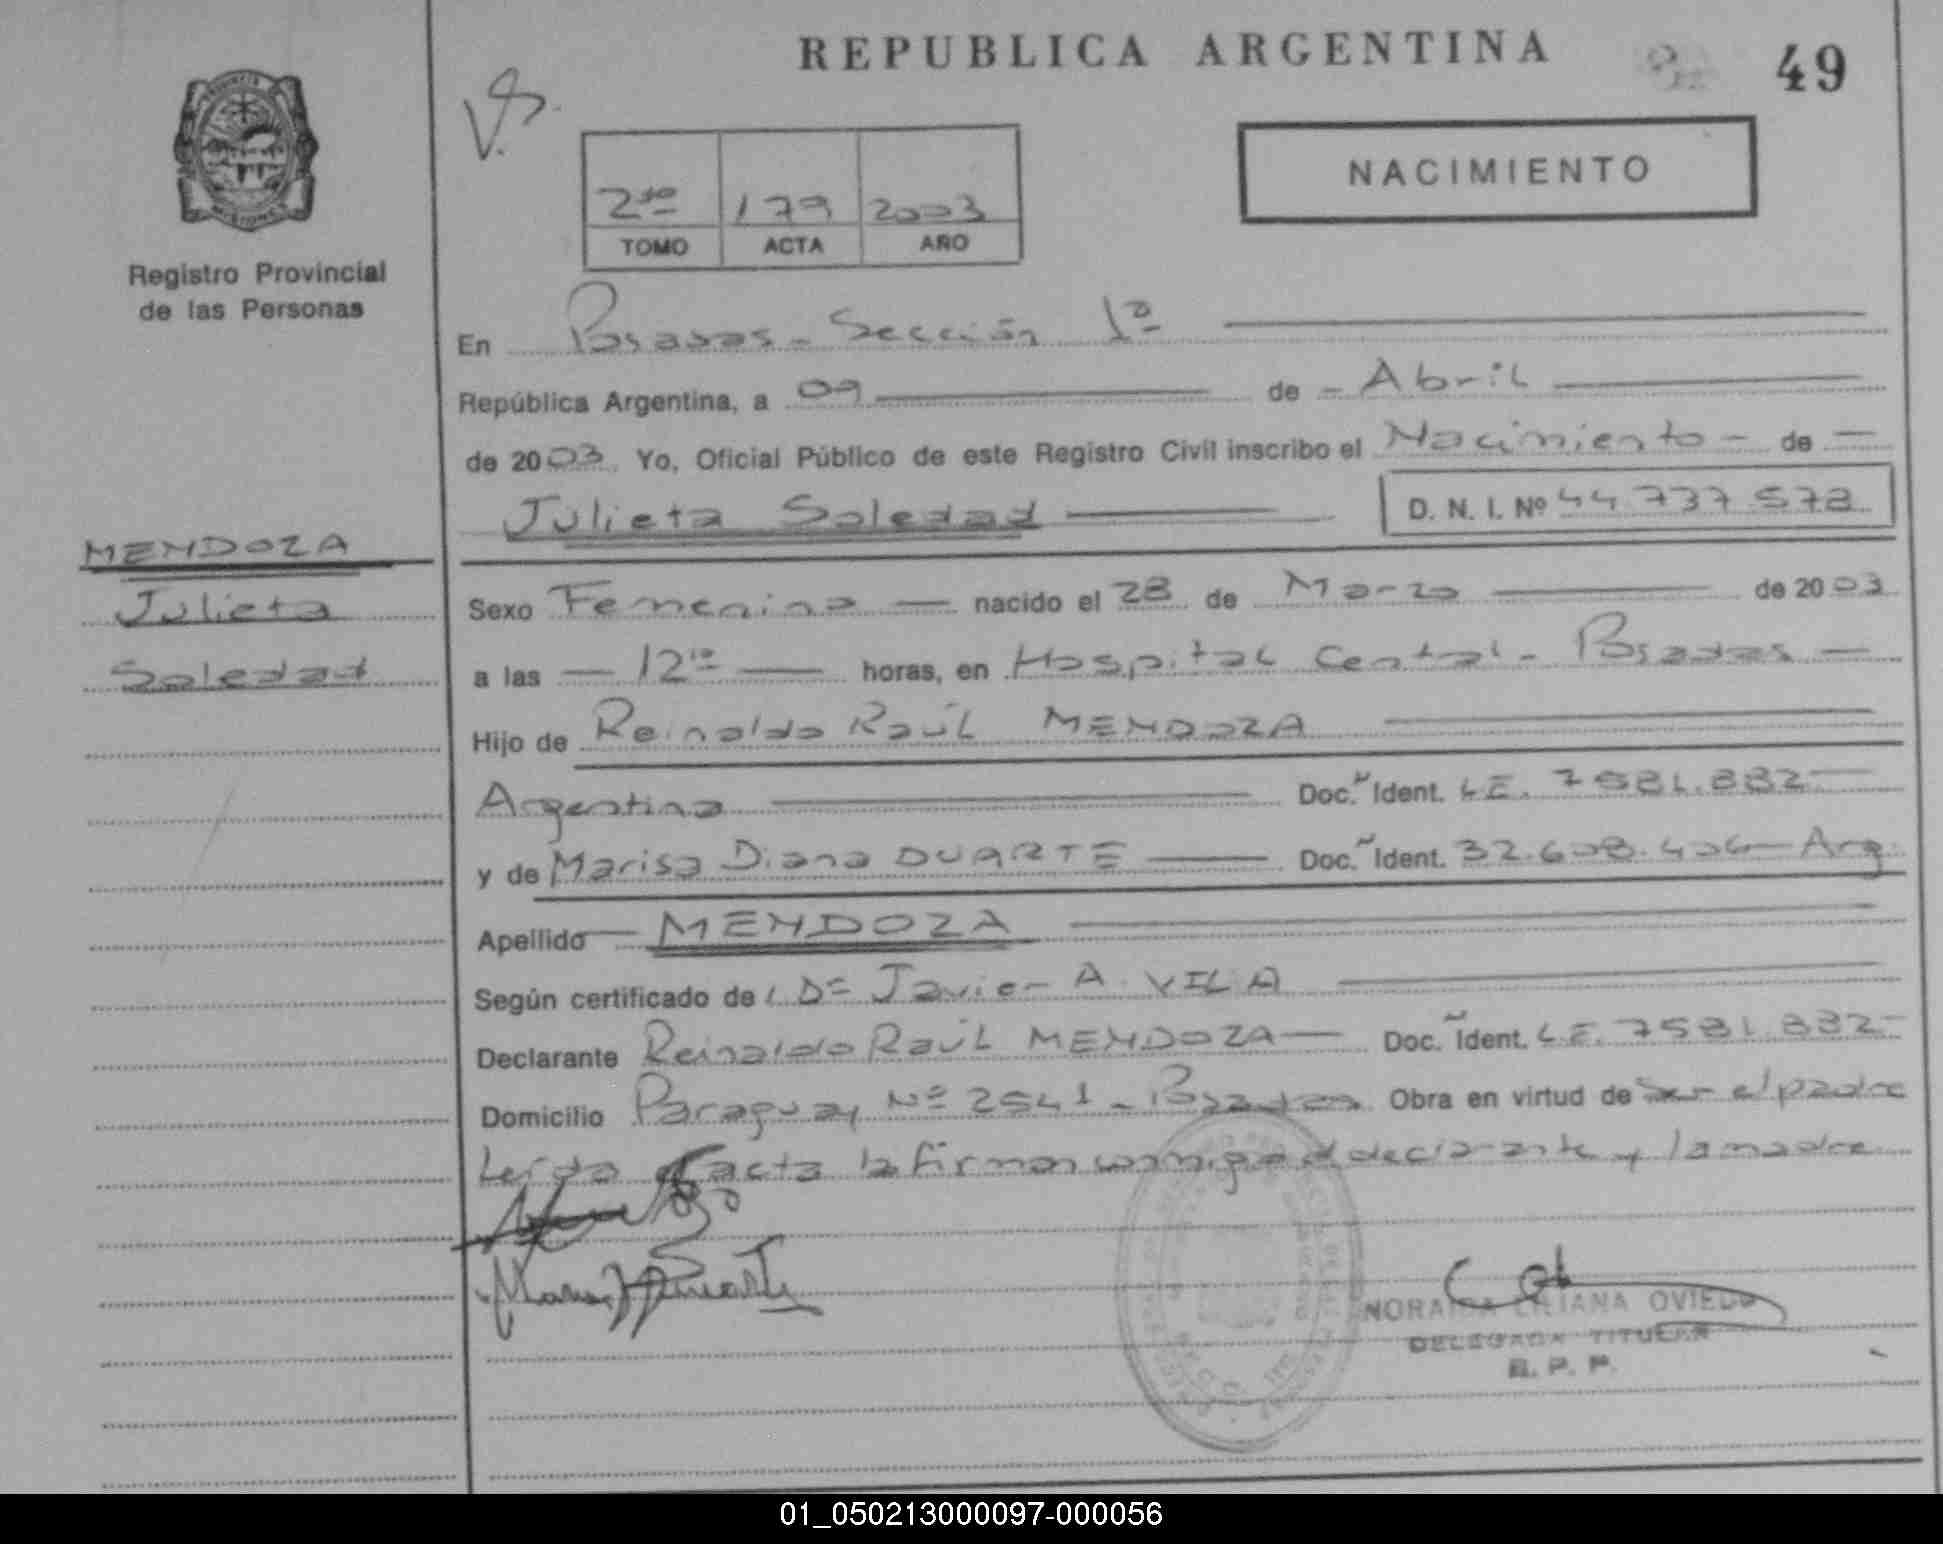 REPUBLICA ARGENTINA
49
PROVINCIA
MISIONES
Registro Provincial
de las Personas
2do 179 2003
TOMO ACTA AÑO
NACIMIENTO
En Posadas - Sección 1a
República Argentina, a 09 de - Abril
de 2003. Yo, Oficial Público de este Registro Civil inscribo el Nacimiento - de -
Julieta Soledad D. N. I. Nº 44.737.578
MENDOZA
Julieta
Soledad
Sexo Femenino - nacido el 28 de Marzo de 2003
a las - 12 - horas, en Hospital Central - Posadas -
Hijo de Reinaldo Raúl MENDOZA
Argentino Doc. Ident. L.E. 7581.882
y de Marisa Diana DUARTE Doc. Ident. 32.608.404 - Arg.
Apellido MENDOZA
Según certificado de Dr Javier A. VILA
Declarante Reinaldo Raúl MENDOZA - Doc. Ident. L.E. 7581.882
Domicilio Paraguay Nº 2541 - Posadas Obra en virtud de Ser el padre
Leída el acta la firman conmigo el declarante y la madre
NORAIDA LILIANA OVIEDO
DELEGADA TITULAR
R. P. P.
01_050213000097-000056